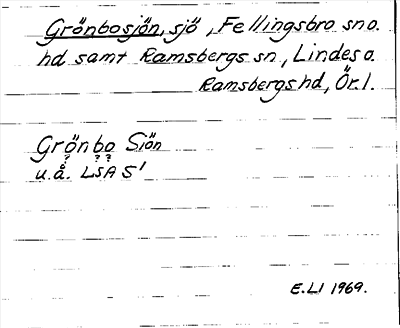 Grönbosjön, sjö, Fellingsbro sn o.
hd samt Ramsbergs sn, Lindes o.
Ramsbergs hd, Ör.l.
Grönbo Siön
? ? ?
u.å. LSA S1
E.LI 1969.